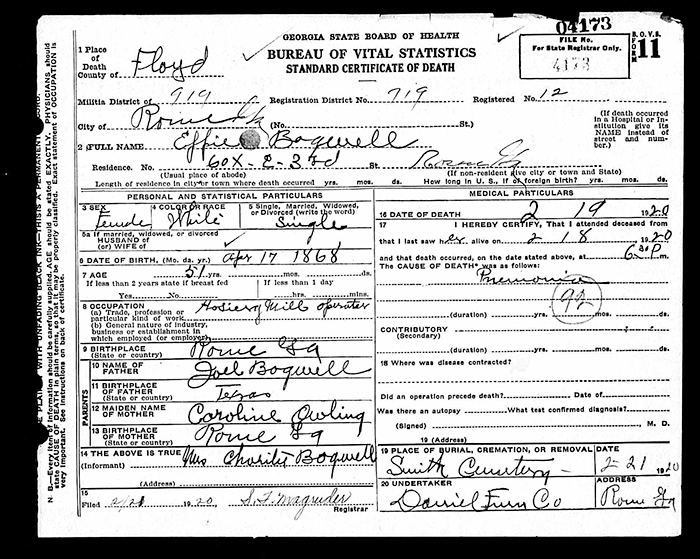 GEORGIA STATE BOARD OF HEALTH
BUREAU OF VITAL STATISTICS
STANDARD CERTIFICATE OF DEATH
04173
FILE No.
For State Registrar Only.
4173
B. O. V. S.
FORM
11
1 Place
of
Death
County of Floyd
Militia District of 919 Registration District No. 719 Registered No. 12
City of Rome Ga (No. St.)
(If death occurred
in a Hospital or In-
stitution give its
NAME instead of
street and num-
ber.)
2 (FULL NAME) Effie Bogwell
Residence. No. 60X-E-3rd St Rome Ga
(Usual place of abode) (If non-resident give city or town and State)
Length of residence in city or town where death occurred yrs. mos. ds. How long in U. S., if of foreign birth? yrs. mos. ds.
PERSONAL AND STATISTICAL PARTICULARS
3 SEX 4 COLOR OR RACE 5 Single, Married, Widowed,
or Divorced (write the word)
Female White Single
5a If married, widowed, or divorced
HUSBAND of
(or) WIFE of
6 DATE OF BIRTH (Mo. da. yr.) Apr 17 1868
7 AGE 51 yrs. mos. ds.
If less than 2 years state if breast fed If less than 1 day
Yes. No. hrs. mins.
8 OCCUPATION
(a) Trade, profession or
particular kind of work Hosiery Mill operater
(b) General nature of industry,
business or establishment in
which employed (or employer)
9 BIRTHPLACE
(State or country) Rome Ga
PARENTS
10 NAME OF
FATHER Joel Bogwell
11 BIRTHPLACE
OF FATHER
(State or country) Texas
12 MAIDEN NAME
OF MOTHER Caroline Owling
13 BIRTHPLACE
OF MOTHER
(State or country) Rome Ga
14 THE ABOVE IS TRUE
(Informant) Mrs Bogwell
(Address)
15
Filed 2/21 1920 S. F. Magruder
Registrar
MEDICAL PARTICULARS
16 DATE OF DEATH 2 19 1920
17 I HEREBY CERTIFY, That I attended deceased
that I last saw her alive on 2 18 1920
and that death occurred, on the date stated above, at 6 P
The CAUSE OF DEATH* was as follows:
Pnemonia
92
(duration) yrs. mos. ds.
CONTRIBUTORY
(Secondary)
(duration) yrs. mos. ds.
18 Where was disease contracted?
Did an operation precede death? Date of
Was there an autopsy What test confirmed diagnosis?
(Signed) M. D.
19 (Address)
19 PLACE OF BURIAL, CREMATION, OR REMOVAL DATE
Smith Cemetery 2-21 1920
20 UNDERTAKER ADDRESS
Daniel Furn Co Rome Ga